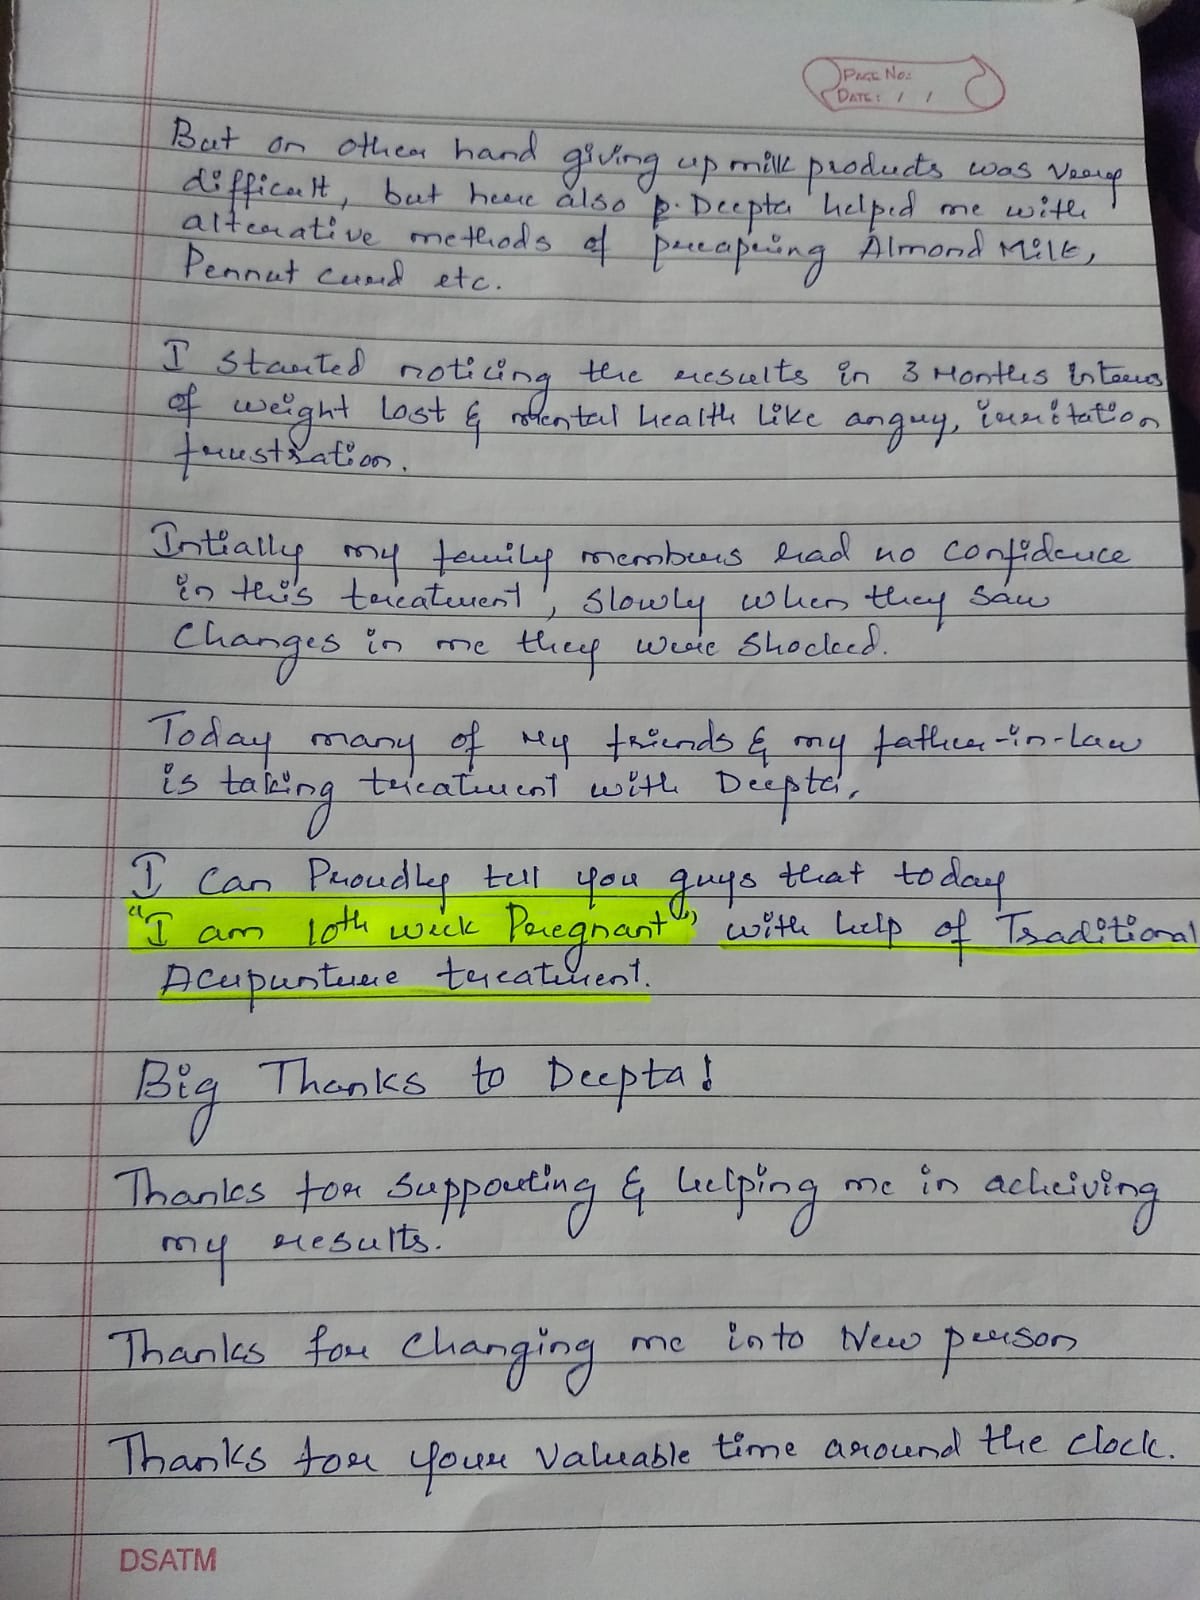 PAGE NO:
DATE: / /
But on other hand giving up milk products was very
difficult, but here also Deepta helped me with
alterative methods of precapering Almond Milk,
Pennut curd etc.
I started noticing the results in 3 Months interms
of weight lost & mental health like angry, irritation
frustration.
Intially my family members had no confidence
in this treatment, slowly when they saw
changes in me they were shocked.
Today many of my friends & my father-in-law
is taking treatment with Deepta.
I can Proudly tell you guys that today
"I am 10th week Pregnant" with help of Traditional
Acupunture treatment.
Big Thanks to Deepta!
Thanks for supporting & helping me in acheiving
my results.
Thanks for changing me into New person
Thanks for your valuable time around the clock.
DSATM